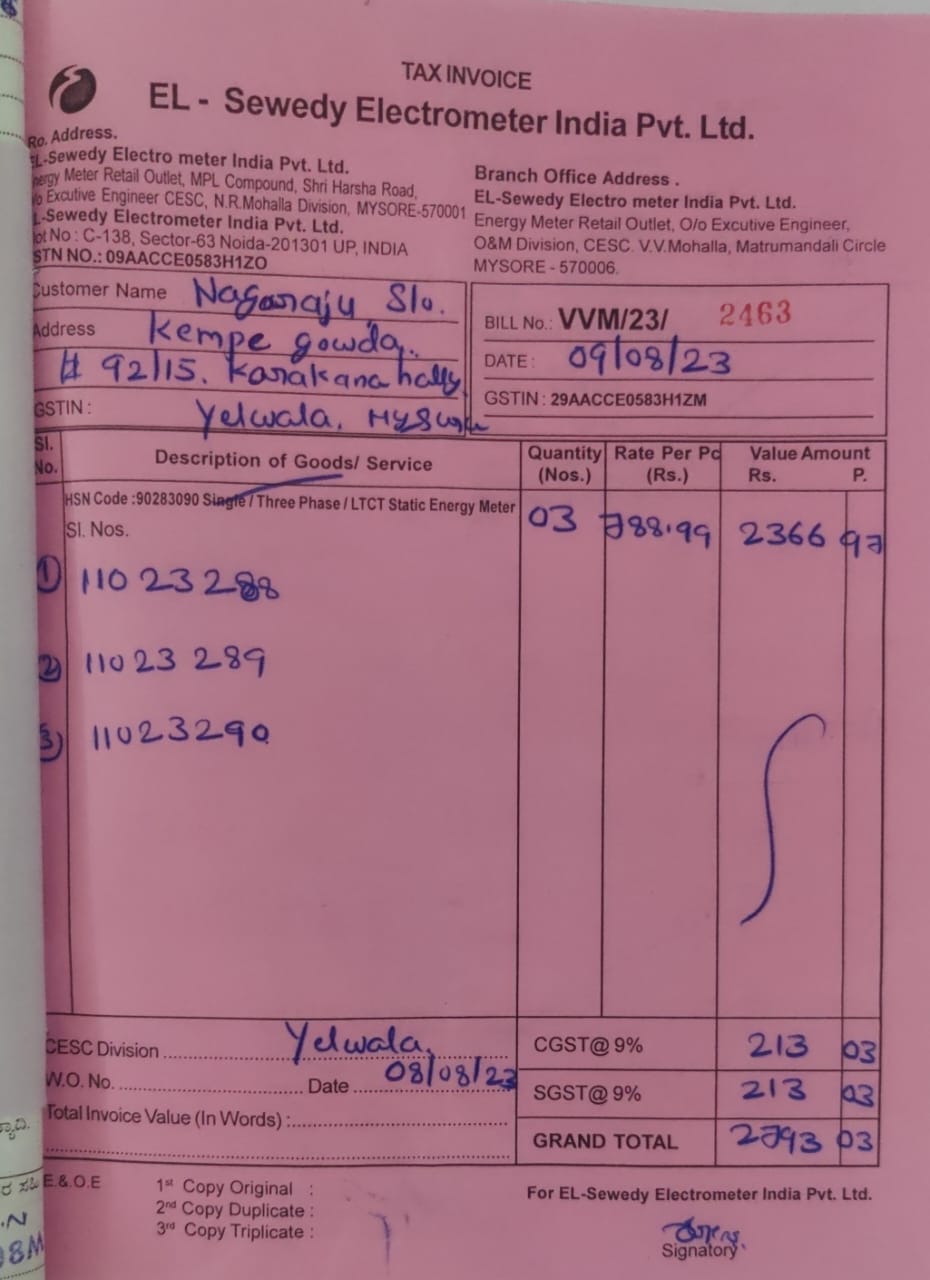 TAX INVOICE
EL - Sewedy Electrometer India Pvt. Ltd.
Ro. Address.
EL-Sewedy Electro meter India Pvt. Ltd.
Energy Meter Retail Outlet, MPL Compound, Shri Harsha Road,
Excutive Engineer CESC, N.R.Mohalla Division, MYSORE-570001
L-Sewedy Electrometer India Pvt. Ltd.
lot No : C-138, Sector-63 Noida-201301 UP, INDIA
STN NO.: 09AACCE0583H1ZO
Branch Office Address .
EL-Sewedy Electro meter India Pvt. Ltd.
Energy Meter Retail Outlet, O/o Excutive Engineer,
O&M Division, CESC. V.V.Mohalla, Matrumandali Circle
MYSORE - 570006.
Customer Name Nagaraju S/o.
Address Kempe gowda.
# 92/15. Karakanahally
GSTIN : Yelwala, Mysore
BILL No.: VVM/23/ 2463
DATE : 09/08/23
GSTIN : 29AACCE0583H1ZM
Sl. No. Description of Goods/ Service Quantity (Nos.) Rate Per Pc (Rs.) Value Amount Rs. P.
HSN Code :90283090 Single / Three Phase / LTCT Static Energy Meter 03 788.99 2366 97
Sl. Nos.
① 11023288
② 11023289
③ 11023290
CESC Division Yelwala,
W.O. No. Date 08/08/23
Total Invoice Value (In Words) :
CGST@ 9% 213 03
SGST@ 9% 213 03
GRAND TOTAL 2793 03
E.&.O.E
1st Copy Original :
2nd Copy Duplicate :
3rd Copy Triplicate :
For EL-Sewedy Electrometer India Pvt. Ltd.
Signatory